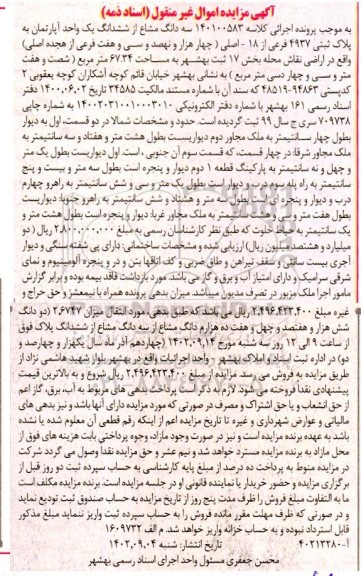 آگهی مزایده اموال غیر منقول (اسناد ذمه)
به موجب پرونده اجرائی کلاسه ۱۴۰۱۰۰۵۸۳ سه دانگ مشاع از ششدانگ یک واحد آپارتمان به
پلاک ثبتی ۴۹۳۷ فرعی از ۱۸ - اصلی ( چهار هزار و نهصد و سی و هفت فرعی از هجده اصلی)
واقع در اراضی نقاش محله بخش ۱۷ ثبت بهشهر به مساحت ۶۷.۳۴ متر مربع ( شصت و هفت
متر و سی و چهار دسی متر مربع ) به نشانی بهشهر خیابان قائم کوچه آشکاران کوچه یعقوبی ۲
کدپستی ۹۴۸۶۳-۴۸۵۱۹ که سند آن با شماره مستند مالکیت ۳۴۵۸۵ تاریخ ۱۴۰۰.۰۶.۰۲ دفتر
اسناد رسمی ۱۶۱ بهشهر با شماره دفتر الکترونیکی ۱۴۰۰۲۰۳۱۰۰۱۰۰۰۳۰۱۰ به شماره چاپی
۷۰۹۷۳۸ سری ج سال ۹۹ ثبت گردیده است. حدود و مشخصات شمالا در دو قسمت، اول به دیوار
بطول چهار سانتیمتر به ملک مجاور دوم دیواریست بطول هشت متر و هفتاد و سه سانتیمتر به
ملک مجاور شرقا: در چهار قسمت، که قسمت سوم آن جنوبی ، است. اول دیواریست بطول یک متر
و چهل و نه سانتیمتر به پارکینگ قطعه ۱ دوم دیوار و پنجره است بطول سه متر و بیست و پنج
سانتیمتر به راه پله سوم در و دیوار است بطول یک متر و سی و شش سانتیمتر به راهرو چهارم
درب و دیوار و پنجره ای است بطول سه متر و هشتاد و شش سانتیمتر به راهرو جنوبا: دیواریست
بطول هفت متر و سانتیمتر به ملک مجاور غربا: دیوار و پنجره است بطول هشت متر و
یک سانتیمتر به حیاط خلوت که طبق نظر کارشناسان رسمی به مبلغ ۲.۸۰۰.۰۰۰.۰۰۰ ریال (دو
میلیارد و هشتصد میلیون ریال) ارزیابی شده و مشخصات ساختمانی: دارای پی شفته سنگی و دیوار
آجری بیست سانتی و سقف تیرآهن و طاق ضربی و کف اتاقها بتن و در و پنجره آلومینیوم و نمای
شرقی سرامیک و دارای امتیاز آب و برق و گاز می باشد. مورد بازداشت فاقد بیمه بوده و برابر گزارش
مامور اجرا ملک مزبور در تصرف مدیون میباشد. میزان بدهی پرونده همراه با نیمعشر و حق حراج و
غیره مبلغ ۲.۴۹۶.۴۲۳.۴۰۰ ریال می باشد که طبق بدهی مورد انتقال میزان ۲.۶۷۴۷ (دو دانگ و
شش هزار و هفتصد و چهل و هفت ده هزارم دانگ) مشاع از سه دانگ مشاع از ششدانگ پلاک فوق
از ساعت ۹ الی ۱۲ روز سه شنبه مورخ ۱۴۰۲.۰۹.۱۴ (چهاردهم آذر ماه سال یکهزار و چهارصد و
دو) در اداره ثبت اسناد و املاک بهشهر - واحد اجرائیات واقع در بهشهر بلوار شهید هاشمی نژاد از
طریق مزایده به فروش می رسد. مزایده از مبلغ ۲.۴۹۶.۴۲۳.۴۰۰ ریال شروع و به بالاترین قیمت
پیشنهادی نقدا فروخته می شود. لازم به ذکر است پرداخت بدهی های مربوط به آب، برق، گاز اعم
از حق انشعاب و یا حق اشتراک و مصرف در صورتی که مورد مزایده دارای آنها باشد و نیز بدهی های
مالیاتی و عوارض شهرداری و غیره تا تاریخ مزایده اعم از اینکه رقم قطعی آن معلوم شده یا نشده
باشد به عهده برنده مزایده است و نیز در صورت وجود مازاد، وجوه پرداختی بابت هزینه های فوق از
محل مازاد به برنده مزایده مسترد خواهد شد و نیم عشر و حق مزایده نقدا وصول می گردد شرکت
در مزایده منوط به پرداخت ده درصد از مبلغ پایه کارشناسی به حساب سپرده ثبت دو روز قبل از
برگزاری مزایده و حضور خریدار یا نماینده قانونی او در جلسه مزایده است. برنده مزایده مکلف است
ما به التفاوت مبلغ فروش را ظرف مدت پنج روز از تاریخ مزایده به حساب صندوق ثبت تودیع نماید
و در صورتی که ظرف مهلت مقرر مانده فروش را به حساب سپرده ثبت واریز ننماید مبلغ مذکور
قابل استرداد نبوده و به حساب خزانه واریز خواهد شد. م الف ۱۶۰۹۷۳۲
آ-۴۰۲۱۳۲۸۰ تاریخ انتشار: شنبه ۱۴۰۲.۰۹.۰۴
محسن جعفری مسئول واحد اجرای اسناد رسمی بهشهر